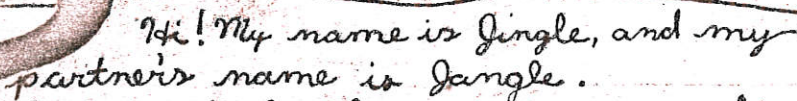 Hi! My name is Jingle, and my
partner's name is Jangle.